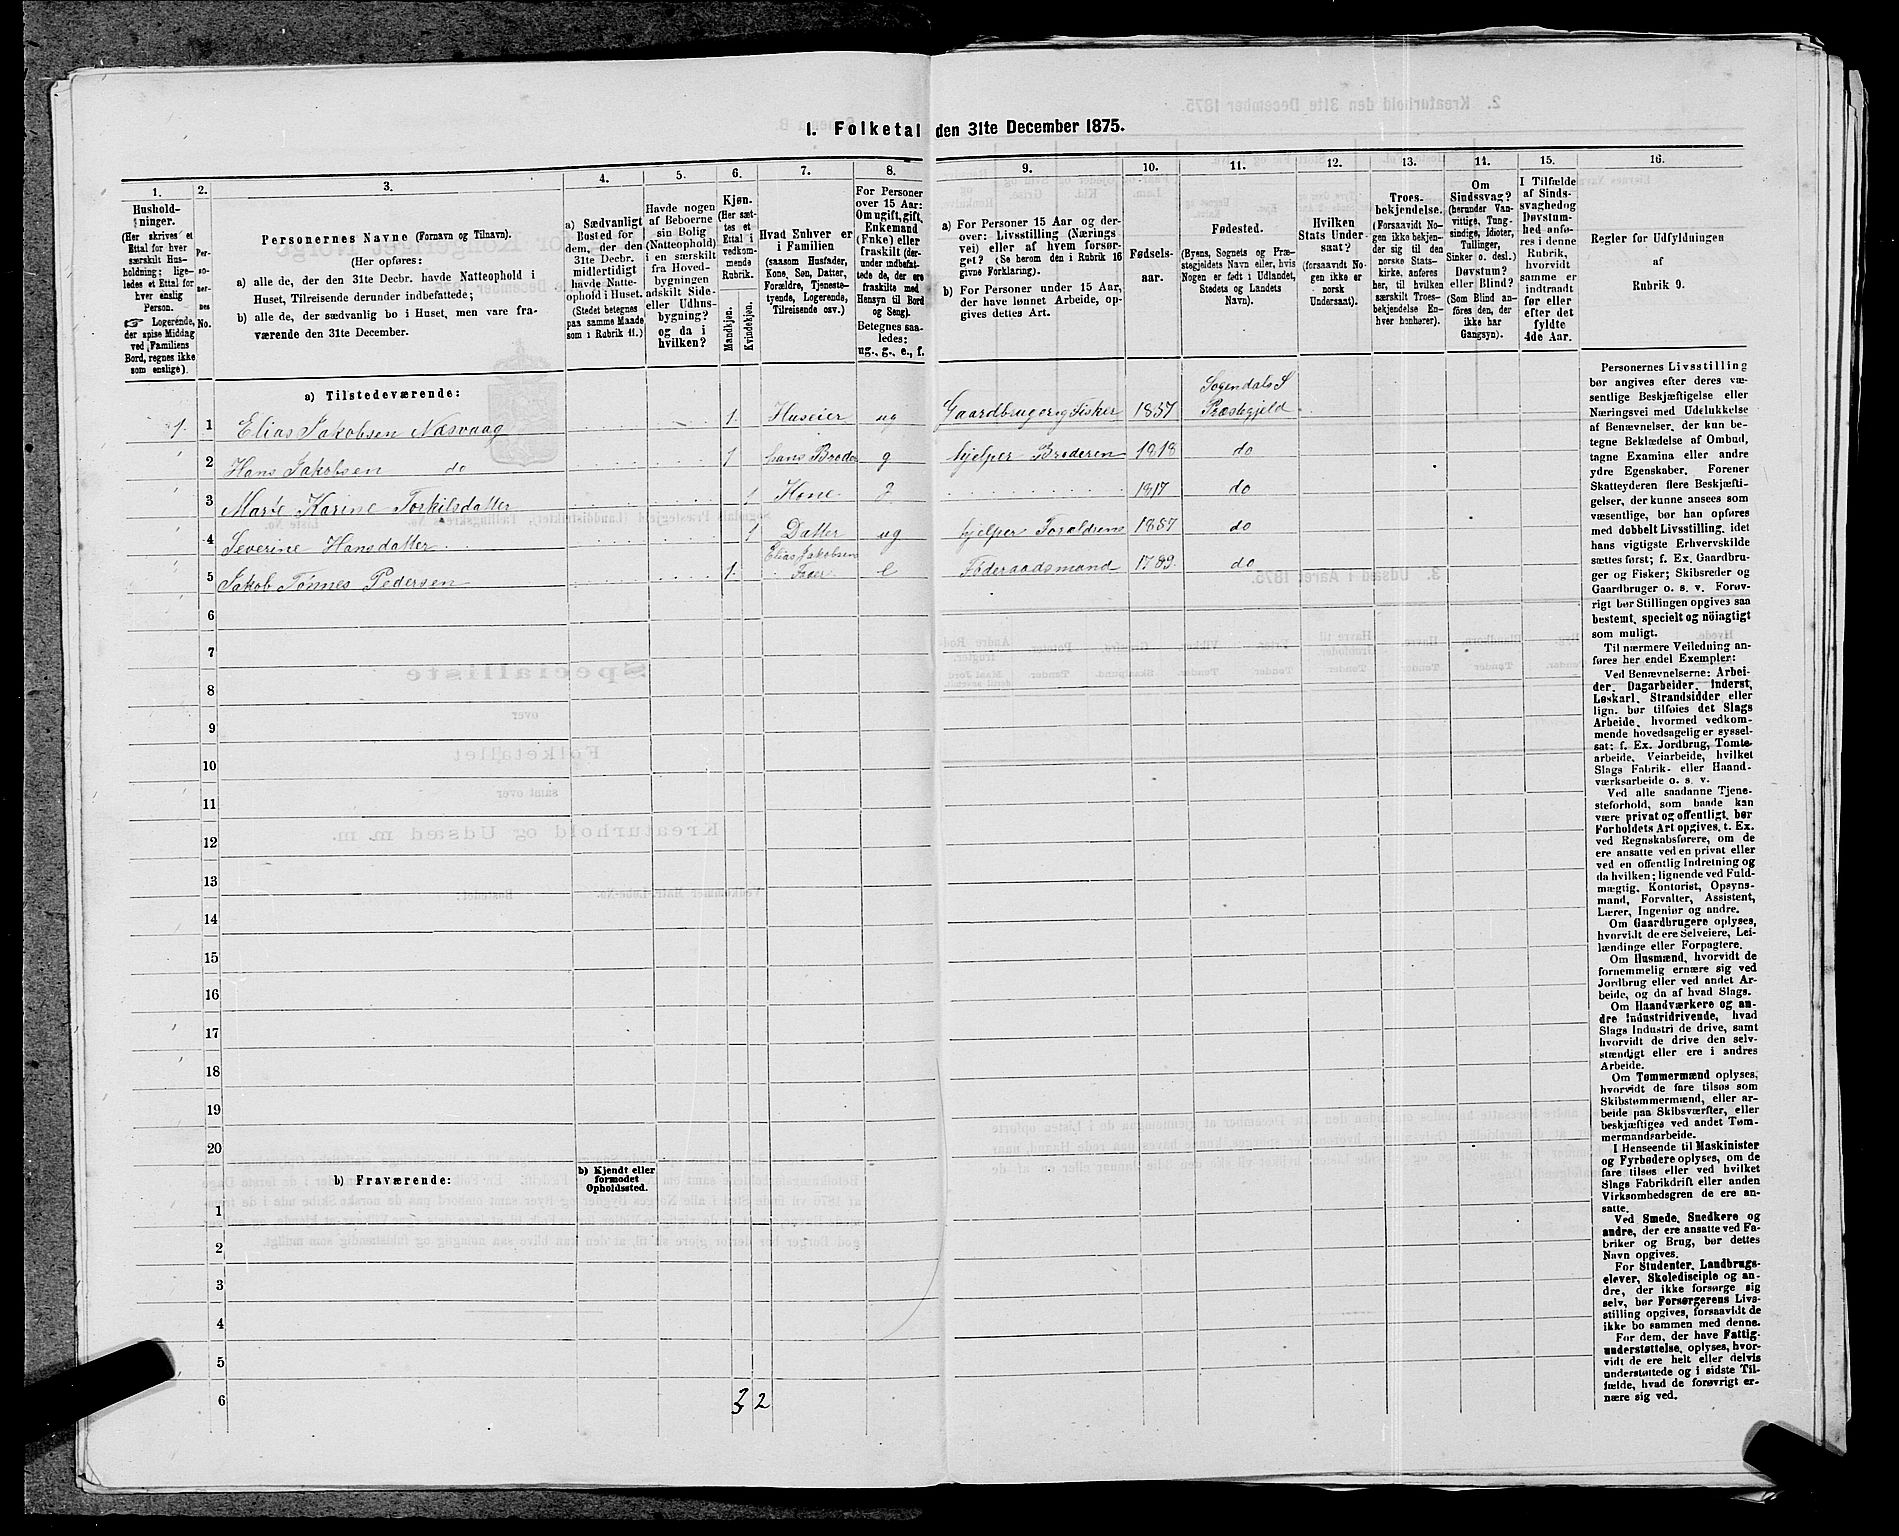 1. Folketal den 31te December 1875.
1.
2.
3.
4.
5.
6.
7.
8.
9.
10.
11.
12.
13.
14.
15.
16.
Hushold-
ninger.
(Her skrives et
Ettal for hver
særskilt Hus-
holdning; lige-
ledes et Ettal for
hver enslig
Person.
☞ Logerende,
der spise Middag
ved Familiens
Bord, regnes ikke
som enslige).
Per-
so-
ner-
nes
No.
Personernes Navne (Fornavn og Tilnavn).
(Her opføres:
a) alle de, der den 31te Decbr. havde Natteophold i
Huset, Tilreisende derunder indbefattede;
b) alle de, der sædvanlig bo i Huset, men vare fra-
værende den 31te December.
a) Sædvanligt
Bosted for
dem, der den
31te Decbr.
midlertidigt
havde Natte-
ophold i Huset.
(Stedet betegnes
paa samme Maade
som i Rubrik 11.)
Havde nogen
af Beboerne
sin Bolig
(Natteophold)
i en særskilt
fra Hoved-
bygningen
adskilt Side-
eller Udhus-
bygning?
og da i
hvilken?
Kjøn.
(Her sæt-
tes et
Ettal i
vedkom-
mende
Rubrik.
Mandkjøn.
Kvindekjøn.
Hvad Enhver er
i Familien
(saasom Husfader,
Kone, Søn, Datter,
Forældre, Tjeneste-
tyende, Logerende,
Tilreisende osv.)
For Personer
over 15 Aar:
Om ugift, gift,
Enkemand
(Enke) eller
fraskilt (der-
under indbefat-
tede de, der ere
fraskilte med
Hensyn til Bord
og Seng).
Betegnes saa-
ledes:
ug., g., e., f.
a) For Personer 15 Aar og der-
over: Livsstilling (Nærings
vei) eller af hvem forsør-
get? (Se herom den i Rubrik 16
givne Forklaring).
b) For Personer under 15 Aar,
der have lønnet Arbeide, op-
gives dettes Art.
Fødsels-
aar.
Fødested.
(Byens, Sognets og Præ-
stegjeldets Navn eller, hvis
Nogen er født i Udlandet,
Stedets og Landets
Navn).
Hvilken
Stats Under-
saat?
(forsaavidt No-
gen ikke er
norsk
Undersaat).
Troes-
bekjendelse.
(Forsaavidt No-
gen ikke bekjen-
der sig til den
norske Stats-
kirke, anføres
her, til hvilken
særskilt Troes-
bekjendelse En-
hver henhører).
Om
Sindssvag?
(herunder Van-
vittige, Tung-
sindige, Idioter,
Tullinger,
Sinker o. desl.)
Døvstum?
eller Blind?
(Som Blind an-
føres den, der
ikke har
Gangsyn).
I Tilfælde
af Sinds-
svaghed og
Døvstum-
hed anfø-
res i denne
Rubrik,
hvorvidt
samme er
indtraadt
før eller
efter det
fyldte
4de Aar.
Regler for Udfyldningen
af
Rubrik 9.
a) Tilstedeværende:
1. 1 Elias Jakobsen Næsvaag 1. Huseier ug Gaardbruger og Fisker 1857 Sogendals S Præstegjeld
2 Hans Jakobsen do 1 hans Broder g hjelper Broderen 1818 do
3 Marte Karine Torkilsdatter 1 Kone g 1817 do
4 Severine Hansdatter 1 Datter ug hjelper Foraldrene 1857 do
5 Jakob Tønnes Pedersen 1. Elias Jakobsen Fader e Føderaadsmand 1789. do
6
7
8
9
10
11
12
13
14
15
16
17
18
19
20
b) Fraværende:
b) Kjendt eller
formodet
Opholdssted.
1
2
3
4
5
6
3 2
Personernes Livsstilling
bør angives efter deres væ-
sentlige Beskjæftigelse eller
Næringsvei med Udelukkelse
af Benævnelser, der kun be-
tegne Beklædelse af Ombud,
tagne Examina eller andre
ydre Egenskaber. Forener
Skatteyderen flere Beskjæfti-
gelser, der kunne ansees som
væsentlige, bør han opføres
med dobbelt Livsstilling, idet
hans vigtigste Erhvervskilde
sættes først; f. Ex. Gaardbru-
ger og Fisker; Skibsreder og
Gaardbruger o. s. v. Forøv-
rigt bør Stillingen opgives saa
bestemt, specielt og nöiagtigt
som muligt.
Til nærmere Veiledning an-
føres her endel Exempler:
Ved Benævnelserne: Arbei-
der, Dagarbeider, Inderst,
Løskarl, Strandsidder eller
lign. bør tilføies det Slags
Arbeide, hvormed vedkom-
mende hovedsagelig er syssel-
sat; f. Ex. Jordbrug, Tomte-
arbeide, Veiarbeide, hvilket
Slags Fabrik- eller Haand-
værksarbeide o. s. v.
Ved alle saadanne Tjene-
steforhold, som baade kan
være privat og offentligt, bør
Forholdets Art opgives, t. Ex.
ved Regnskabsførere, om de
ere ansatte ved en privat eller
ved en offentlig Indretning og
da hvilken; lignende ved Fuld-
mægtig, Kontorist, Opsyns-
mand, Forvalter, Assistent,
Lærer, Ingeniør og andre.
Om Gaardbrugere oplyses,
hvorvidt de ere Selveiere, Lei-
lændinge eller Forpagtere.
Om Husmænd, hvorvidt de
fornemmelig ernære sig ved
Jordbrug eller ved andet Ar-
beide, og da af hvad Slags.
Om Haandværkere og an-
dre Industridrivende, hvad
Slags Industri de drive, samt
hvorvidt de drive den selv-
stændigt eller ere i andres
Arbeide.
Om Tømmermænd oplyses,
hvorvidt de fare tilsøs som
Skibstømmermænd, eller ar-
beide paa Skibsværfter, eller
beskjæftiges ved andet Tøm-
mermandsarbeide.
I Henseende til Maskinister
og Fyrbødere oplyses, om de
fare tilsøs eller ved hvilket
Slags Fabrikdrift eller anden
Virksomhedsgren de ere an-
satte.
Ved Smede, Snedkere og
andre, der ere ansatte ved Fa-
briker og Brug, bør dettes
Navn opgives.
For Studenter, Landbrugs-
elever, Skoledisciple og an-
dre, der ikke forsørge sig
selv, bør Forsørgerens Livs-
stilling opgives, forsaavidt de
ikke bo sammen med denne.
For dem, der have Fattig-
understøttelse, oplyses, hvor-
vidt de ere helt eller delvis
understøttede og i sidste Til-
fælde, hvad de forøvrigt er-
nære sig ved.